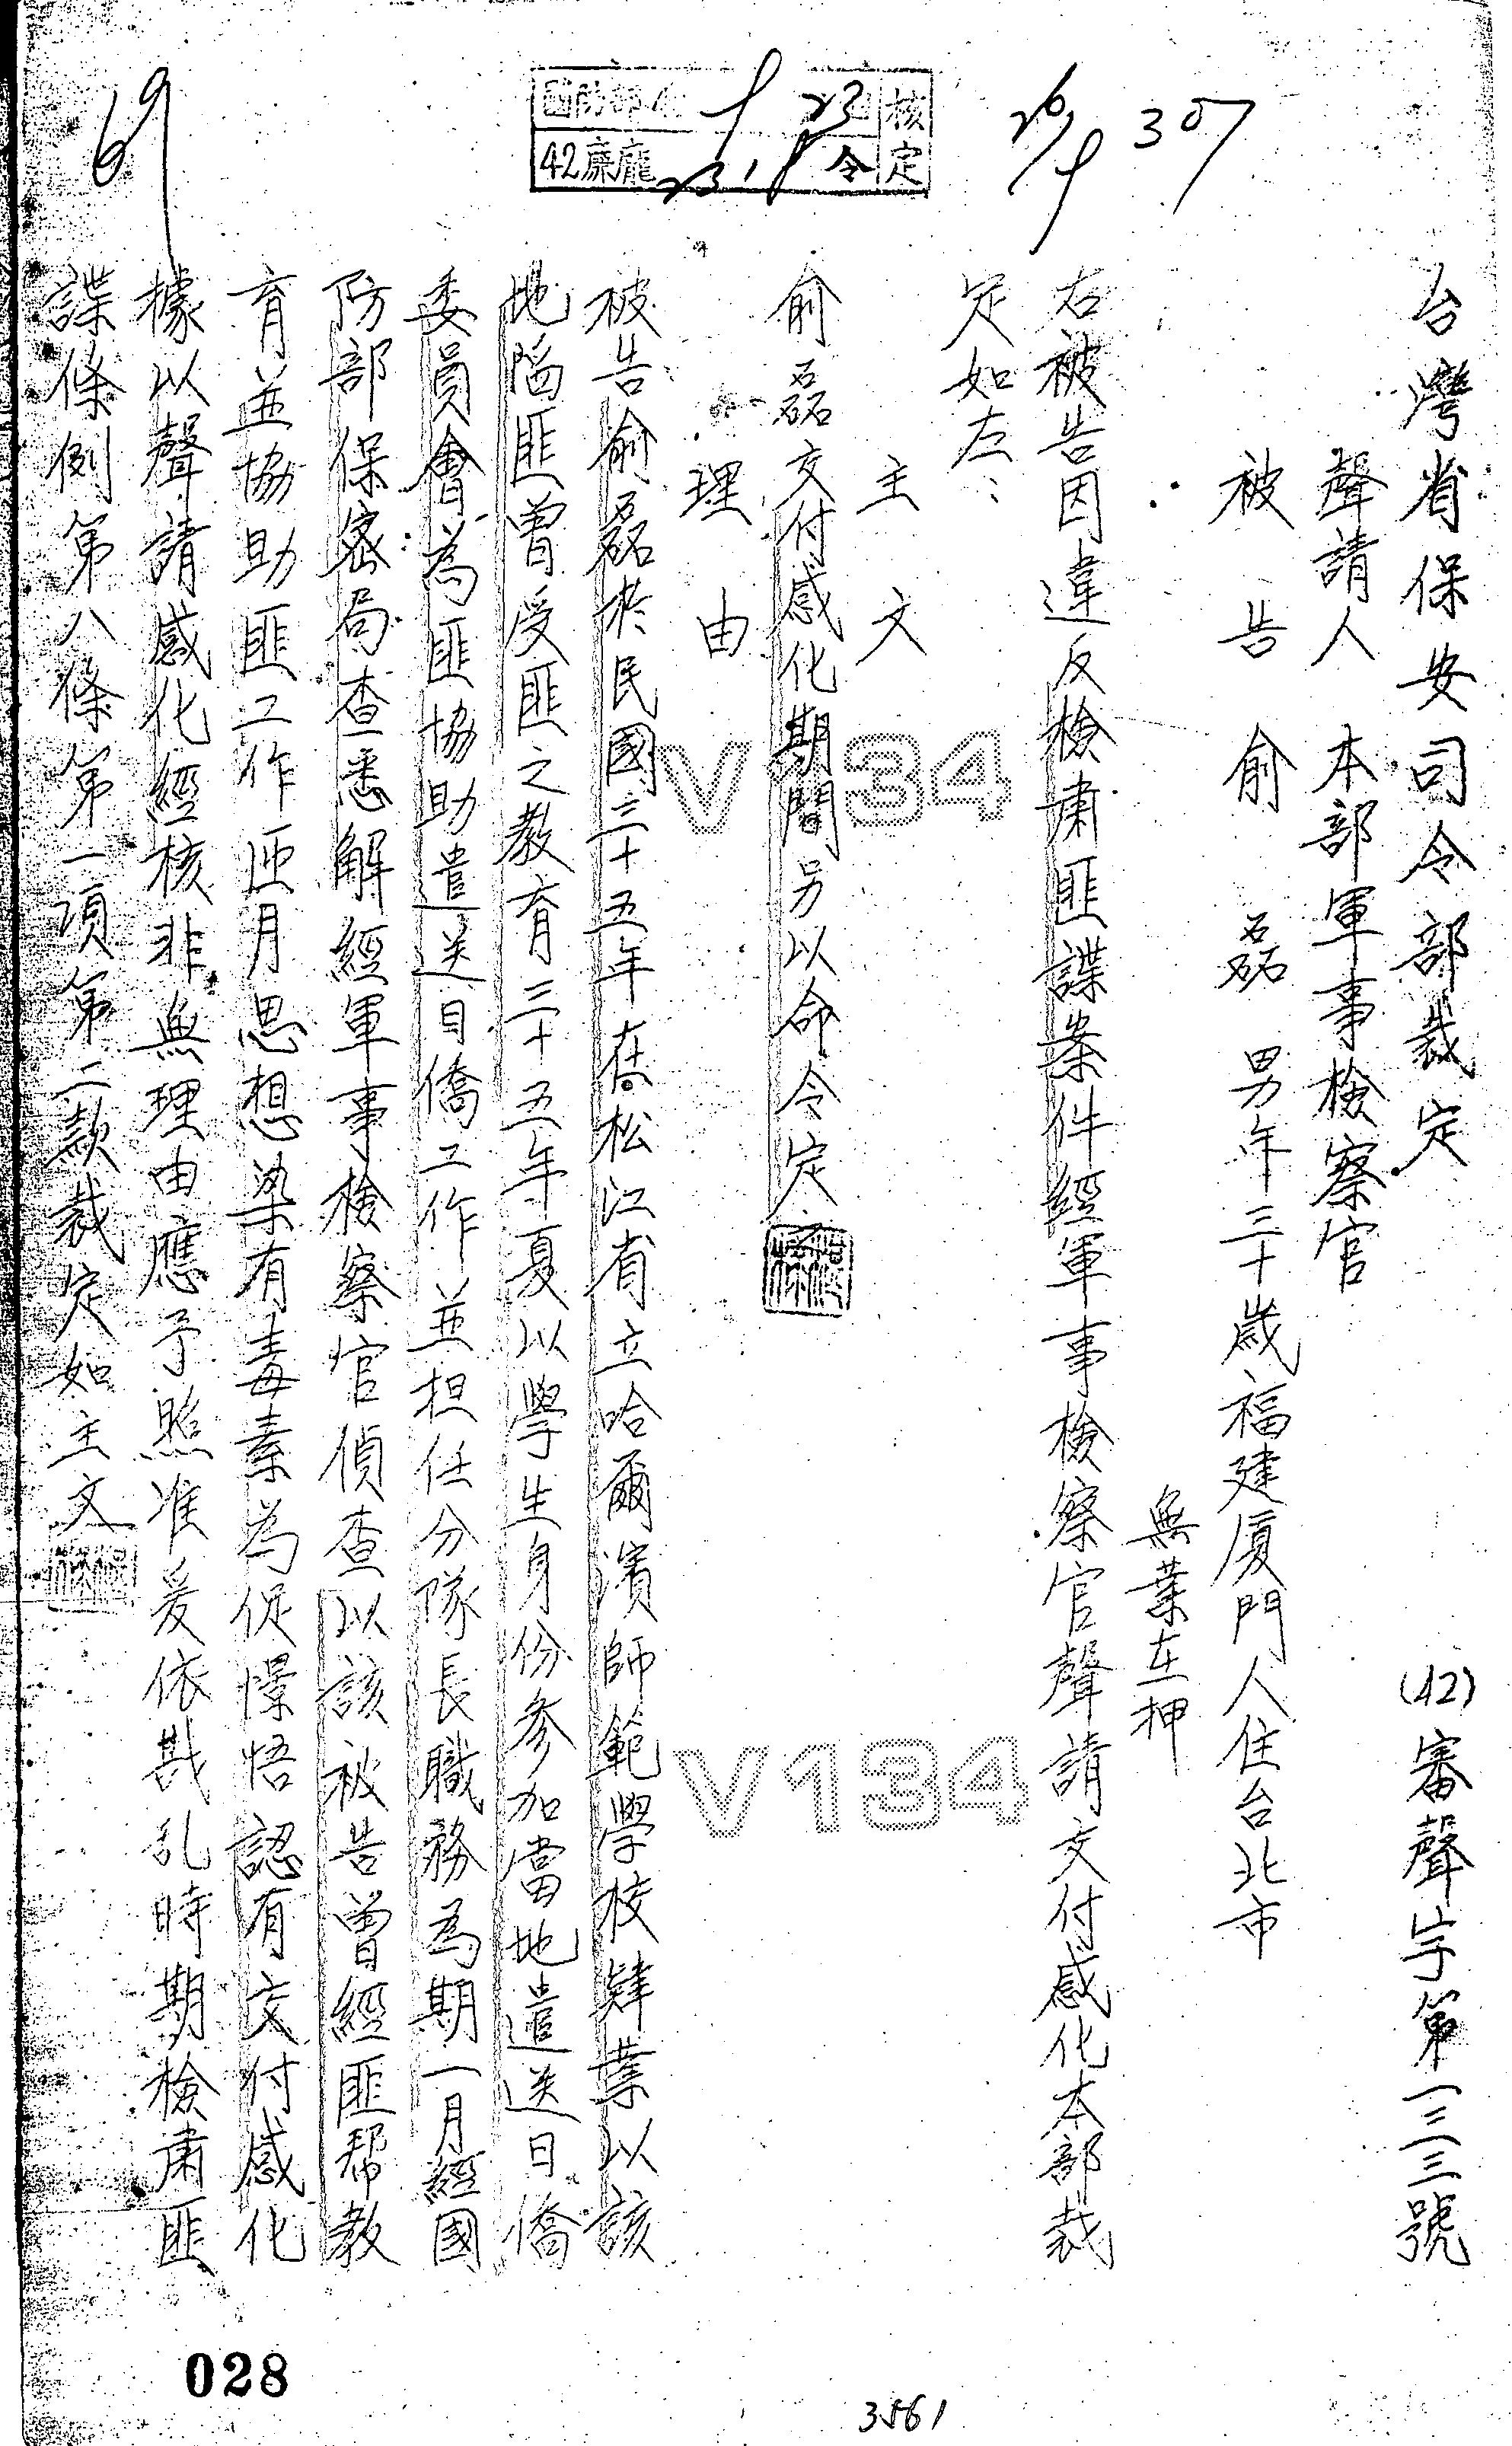 69
國防部
核定
42廉龐
令
307
台灣省保安司令部裁定
(42)審聲字第一三三號
聲請人 本部軍事檢察官
被告 俞磊 男年三十歲福建厦門人住台北市
無業在押
右被告因違反檢肅匪諜案件經軍事檢察官聲請交付感化本部裁
定如左：
主文
俞磊交付感化期間另以命令定
理由
被告俞磊於民國三十五年在松江省立哈爾濱師範學校肄業以該
地陷匪曾受匪之教育三十五年夏以學生身份参加當地遣送日僑
委員會為匪協助遣送日僑工作並担任分隊長職務為期一月經國
防部保密局查悉解經軍事檢察官偵查以該被告曾經匪帮教
育並協助匪工作匝月思想染有毒素為促憬悟認有交付感化
據以聲請感化經核非無理由應予照准爰依戡乱時期檢肅匪
諜條例第八條第一項第二款裁定如主文
V134
V134
028
3561